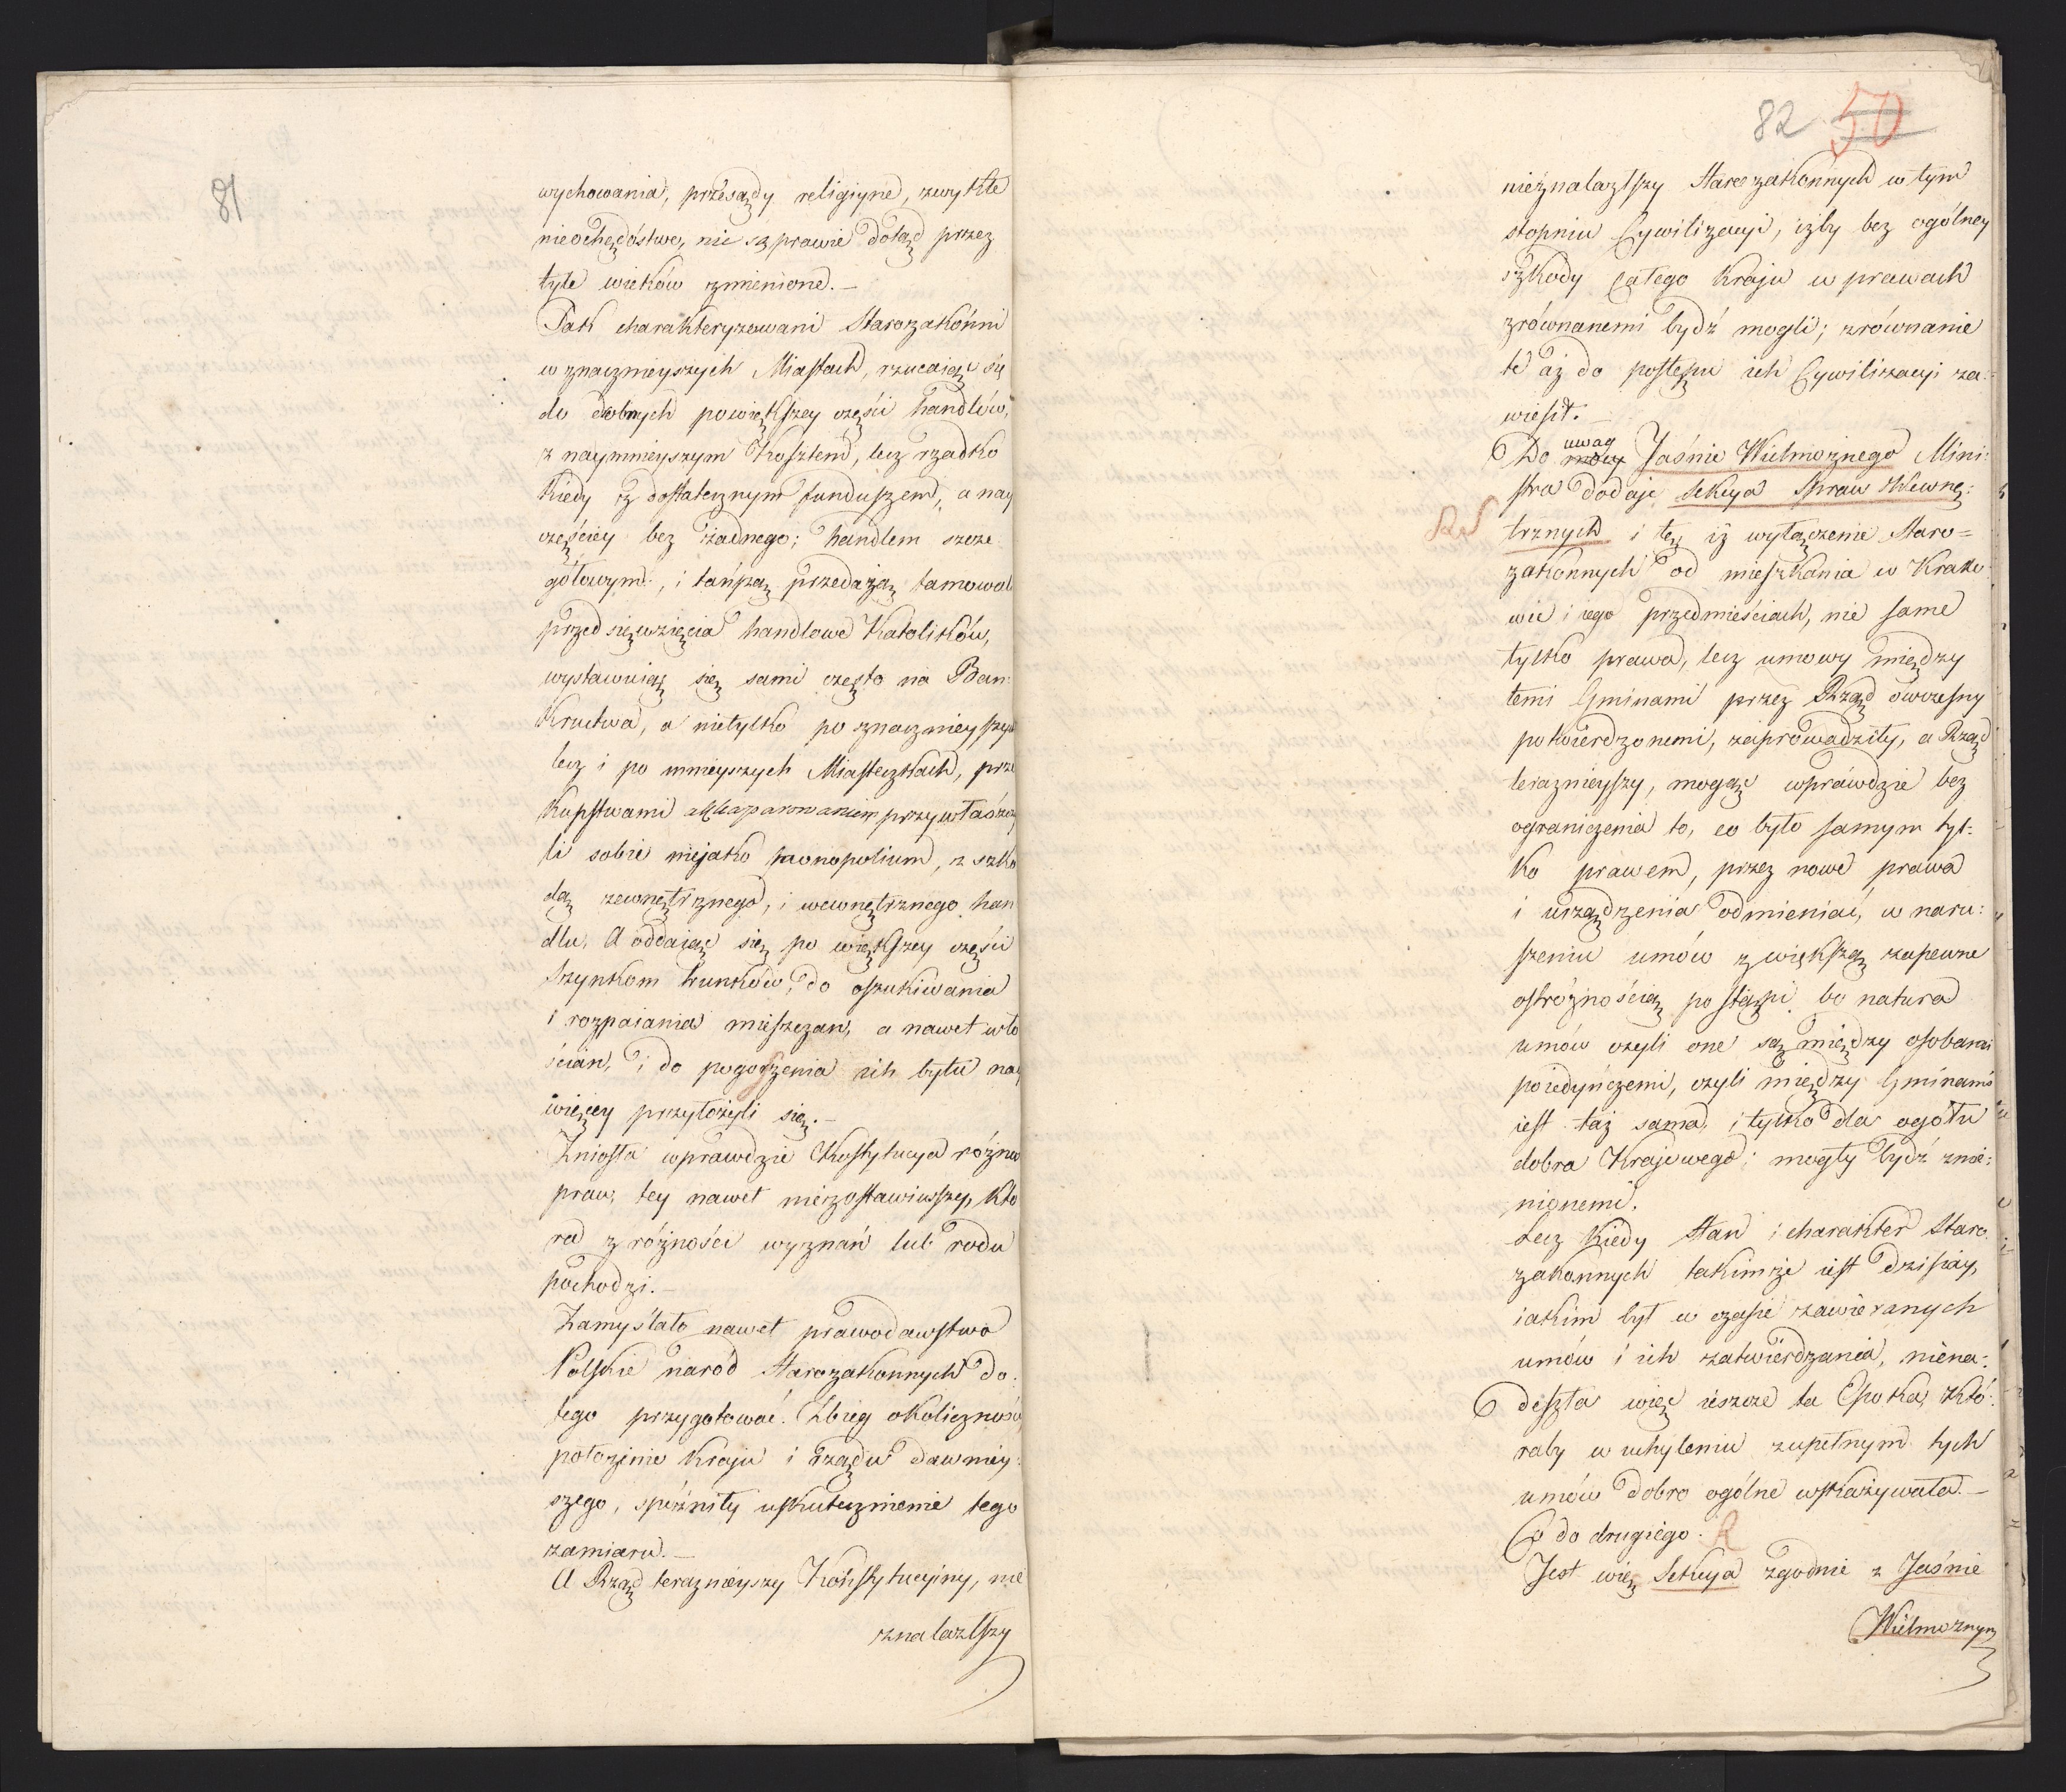 81
wychowania, przesądy religiyne, zwykłe
nieochędóstwo, nie są prawie dotąd przez
tyle wieków zmienione.—
Tak charakteryzowani Starozakonni
w znacznieyszych Miastach, rzucaiąc się
do drobnych powiększey części handlów,
z naymnieyszym Kosztem, lecz rzadko
kiedy z dostatecznym funduszem, a nay
częściey bez żadnego; handlem szcze
gółowym, i tańszą przedażą tamowali
przedsięwzięcia handlowe Katolików,
wystawuiąc się sami często na Ban:
kructwa, a nietylko po znacznieyszych
lecz i po mnieyszych Miasteczkach, prze
kupstwami akkaparowaniem przywłaszczy
li sobie niejako monopolium, z szko
dą zewnętrznego, i wewnętrznego han
dlu, A oddaiąc się po większey części
szynkom trunków, do oszukiwania
i rozpaiania mieszczan, a nawet wło
ścian, i do pogorszenia ich bytu nay
więcey przyłożyli się.—
Zniosła wprawdzie Konstytucya różnice
praw, tey nawet niezostawiwszy, któ
ra z różności wyznań lub rodu
pochodzi.—
Zamyślało nawet prawodawstwo
Polskie naród Starozakonnych do
tego przygotować. Zbieg okoliczności,
położenie Kraju i rządu dawniey:
szego, spóźniły uskutecznienie tego
zamiaru.—
A Rząd teraznieyszy Konstytucyiny, nie
znalazłszy
82 50
nieznalazłszy Starozakonnych w tym
stopniu Cywilizacyi, iżby bez ogólney
szkody całego Kraju w prawach
zrównanemi bydź mogli; zrównanie
te aż do postępu ich Cywilizacyi za:
wiesił.—
uwag
Do mowy Jaśnie Wielmożnego Mini:
stra dodaje Sekcya Spraw Wewnę:
trznych i tę, iż wyłączenie Staro=
zakonnych od mieszkania w Krako
wie i iego przedmieściach, nie same
tylko prawa, lecz umowy między
temi Gminami przez Rząd ówczesny
potwierdzonemi, zaprowadziły, a Rząd
teraznieyszy, mogąc wprawdzie bez
ograniczenia to, co było samym tyl:
ko prawem, przez nowe prawa
i urządzenia odmieniać, w naru:
szeniu umów z większą zapewne
ostrożnością postąpi, bo natura
umów czyli one są między osobami
poiedyńczemi, czyli między Gminami
iest taż sama, i tylko dla ogółu
dobra Krajowego; mogły bydź zmie:
nionemi.
Lecz kiedy stan i charakter Staro
zakonnych takimże iest dzisiay,
iakim był w czasie zawieranych
umów i ich zatwierdzania, niena:
deszła więc ieszcze ta Epoka, któ:
raby w uchyleniu zupełnym tych
umów dobro ogólne wskazywała.—
Co do drugiego.
Jest więc Sekcya zgodnie z Jaśnie
Wielmożnym